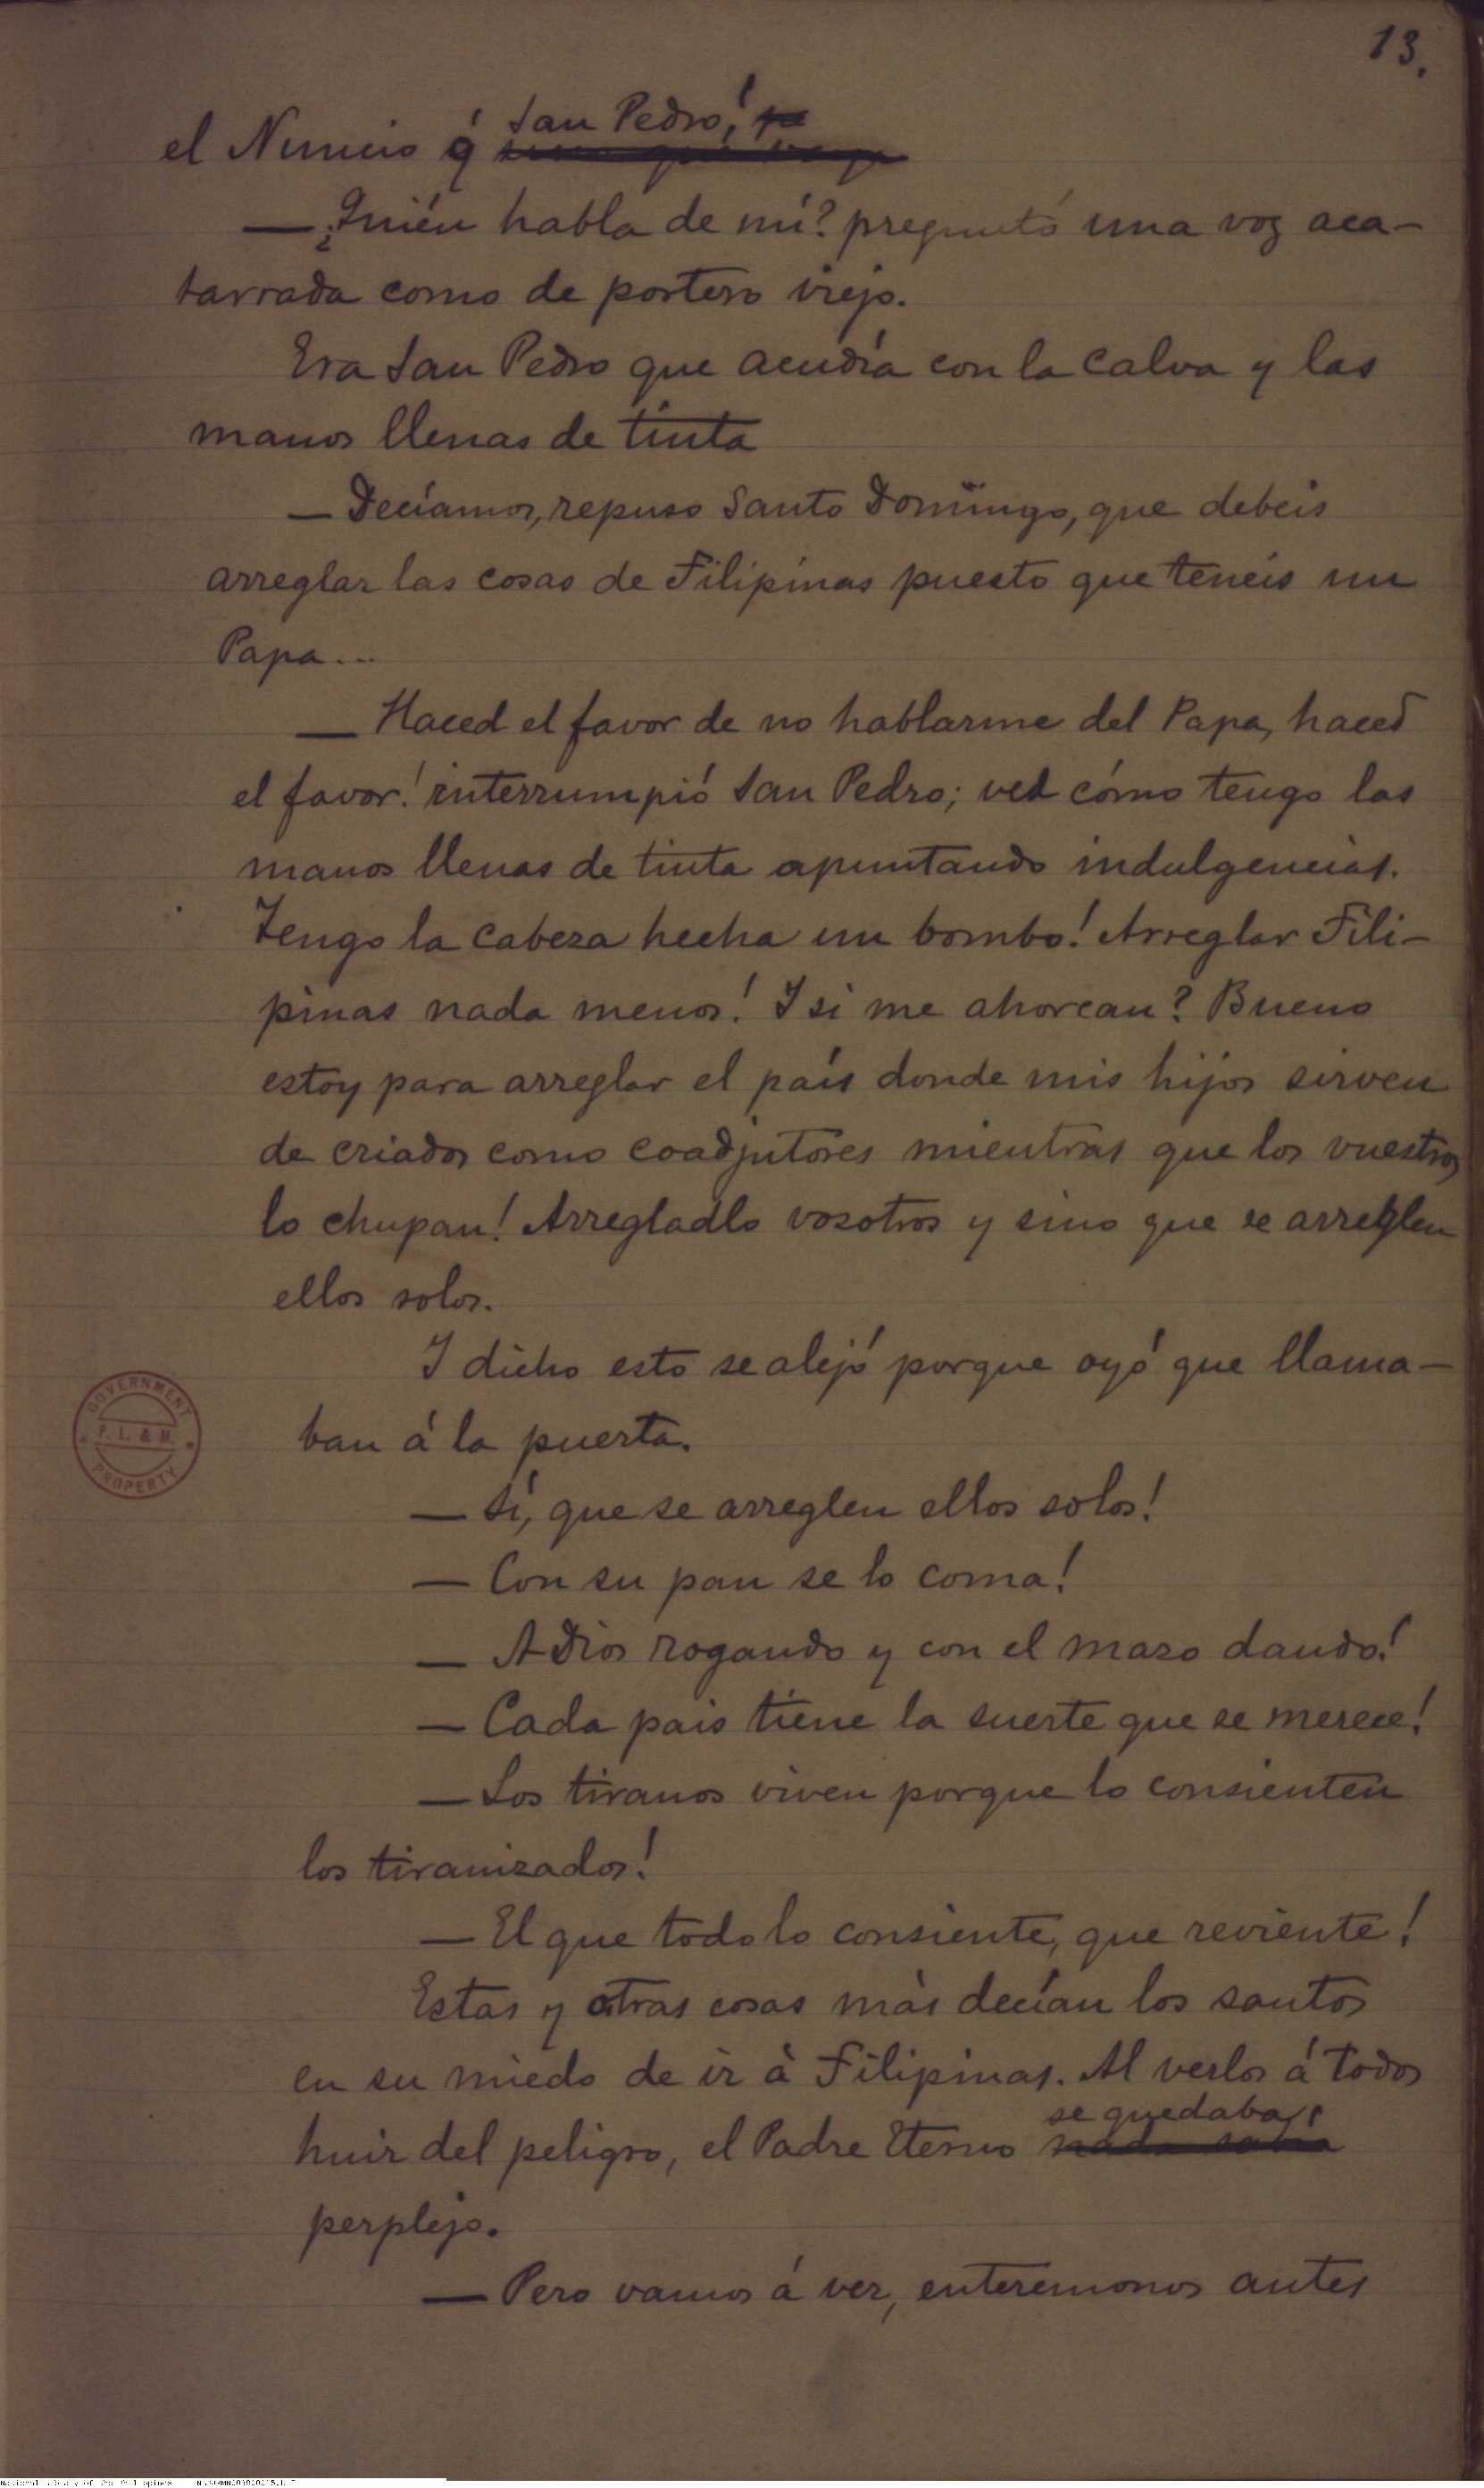 13.
San Pedro!
el Nuncio ó
— ¿Quién habla de mí? preguntó una voz aca-
tarrada como de portero viejo.
Era San Pedro que acudía con la calva y las
manos llenas de tinta
— Decíamos, repuso Santo Domingo, que debeis
arreglar las cosas de Filipinas puesto que teneis un
Papa...
— Haced el favor de no hablarme del Papa, haced
el favor! interrumpió San Pedro; ved cómo tengo las
manos llenas de tinta apuntando indulgencias.
Tengo la cabeza hecha un bombo! Arreglar Fili-
pinas nada menos! Y si me ahorcan? Bueno
estoy para arreglar el país donde mis hijos sirven
de criados como coadjutores mientras que los vuestros
lo chupan! Arregladlo vosotros y sino que se arreglen
ellos solos.
Y dicho esto se alejó porque oyó que llama-
ban á la puerta.
— Sí, que se arreglen ellos solos!
— Con su pan se lo coma!
— A Dios rogando y con el mazo dando!
— Cada pais tiene la suerte que se merece!
— Los tiranos viven porque lo consienten
los tiranizados!
— El que todo lo consiente, que reviente!
Estas y otras cosas más decían los santos
en su miedo de ir à Filipinas. Al verlos á todos
se quedaba
huir del peligro, el Padre Eterno
perplejo.
— Pero vamos á ver, enteremonos antes
GOVERNMENT
P. L. & M.
PROPERTY
National Library of the Philippines